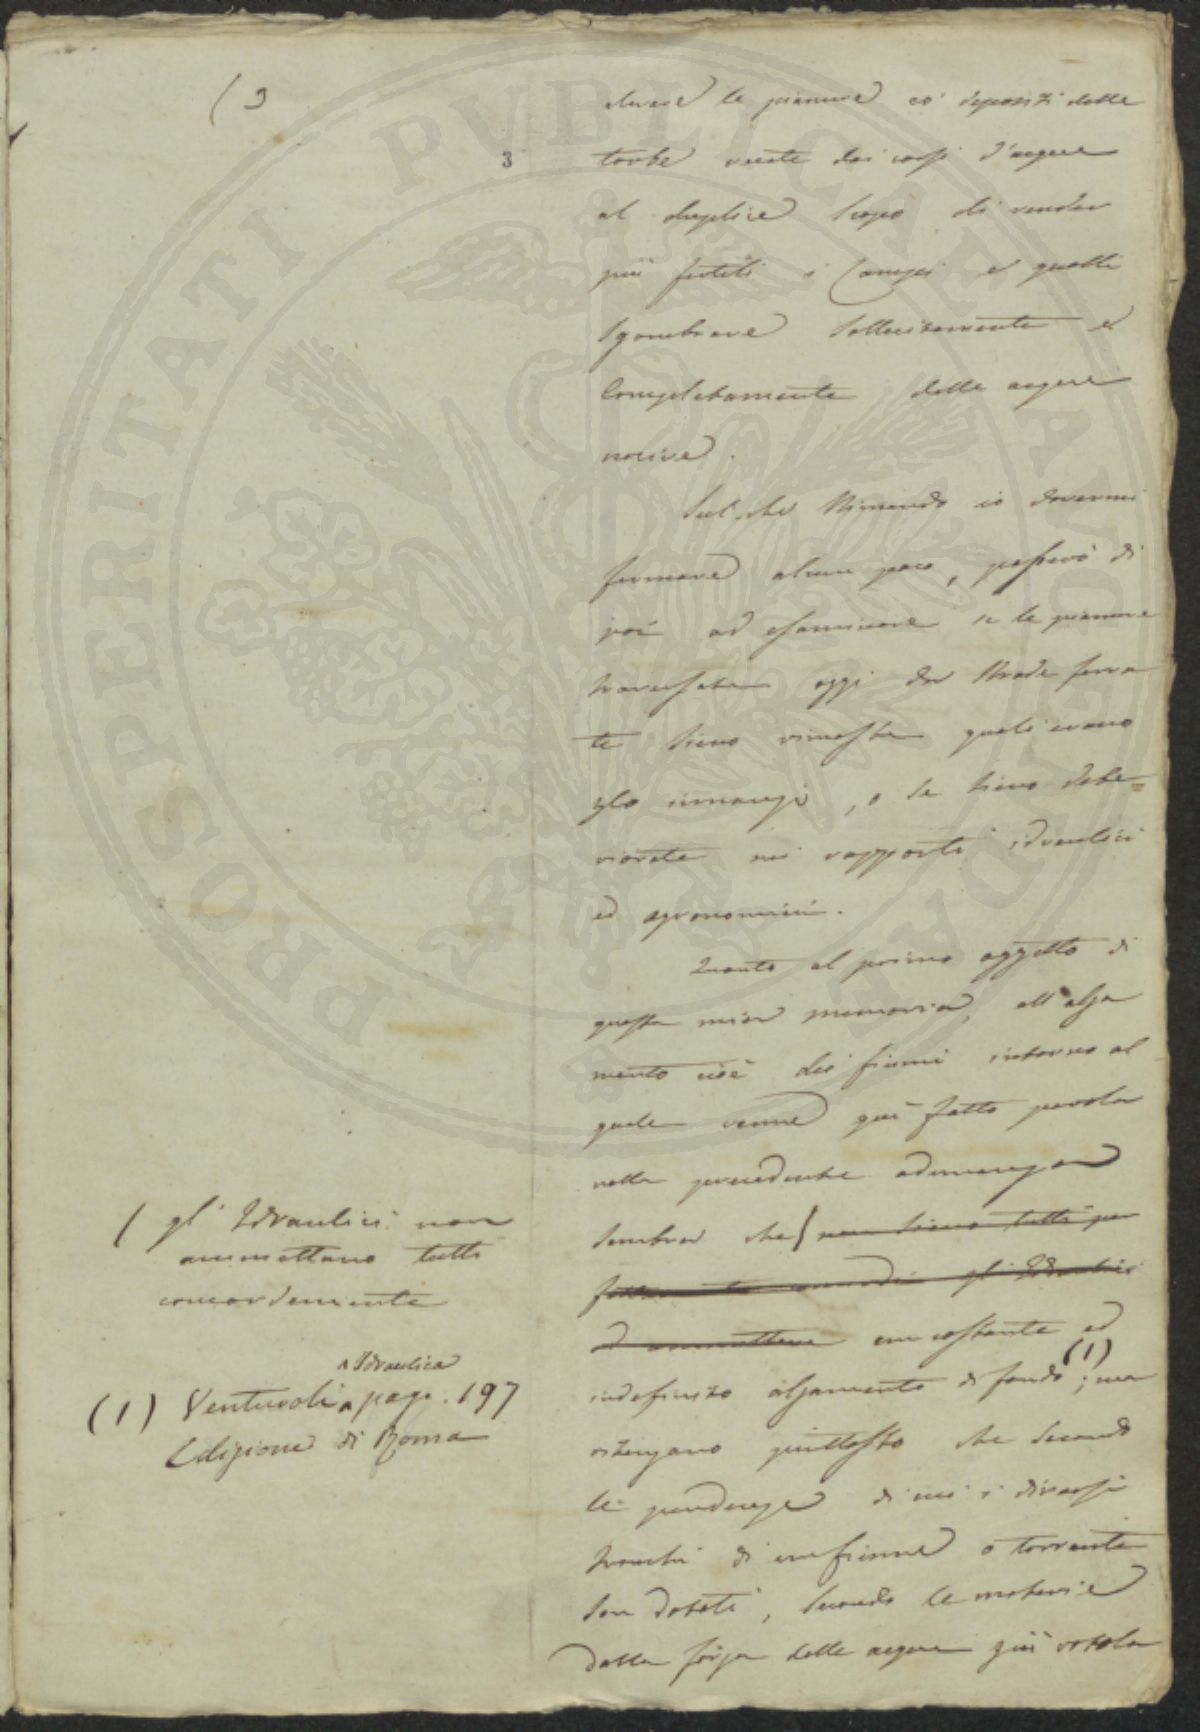 (3
3
elevare le pianure co' depositi delle
torbe recate dai corsi d'acqua
al duplice scopo di render
più fertili i campi e quelli
sgombrare sollecitamente e
completamente delle acque
nocive.
Sul che stimando io dovermi
fermare alcun poco, passerò di
poi ad esaminare se le pianure
traversate oggi da strade ferra
te sieno rimaste quali erano
innanzi, o se sieno dete=
riorate nei rapporti idraulici
ed agronomici.
Quanto al primo oggetto di
questa mia memoria, all'alza
mento cioè dei fiumi intorno al
quale venne già fatto parola
nella precedente adunanza
sembra che non sieno tutti per
gli Idraulici
ad ammettere un costante ed
indefinito alzamento di fondo (1); ma
ritengano piuttosto che secondo
le pendenze di cui i diversi
tronchi di un fiume o torrente
son dotati, secondo le materie
dalla forza delle acque più rotola
( gl' Idraulici non
ammettano tutti
concordemente
Idraulica
(1) Venturoli pag. 197
Edizione di Roma
PROSPERITATI PUBLICAE AUGENDAE